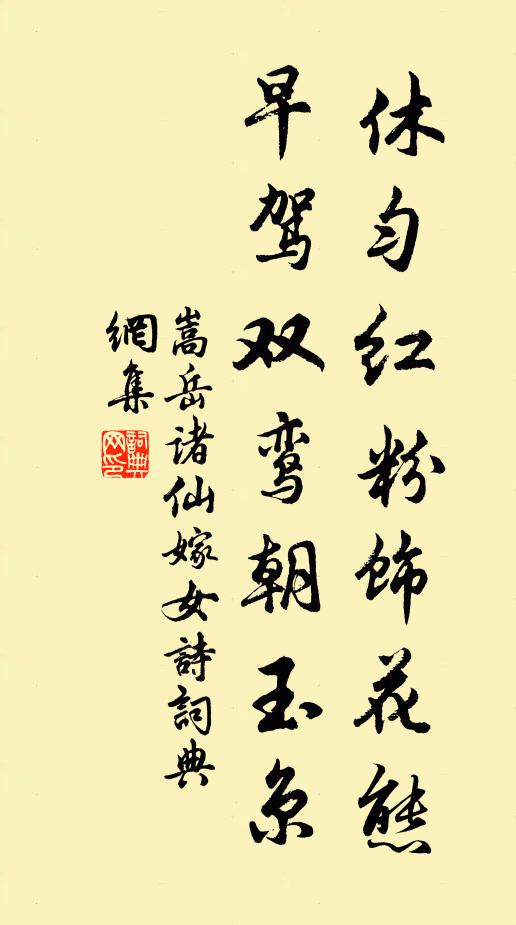 休匀红粉饰花態
早驾双鸾朝玉京
嵩岳诸仙嫁女詩詞典
網集
詞典
网印